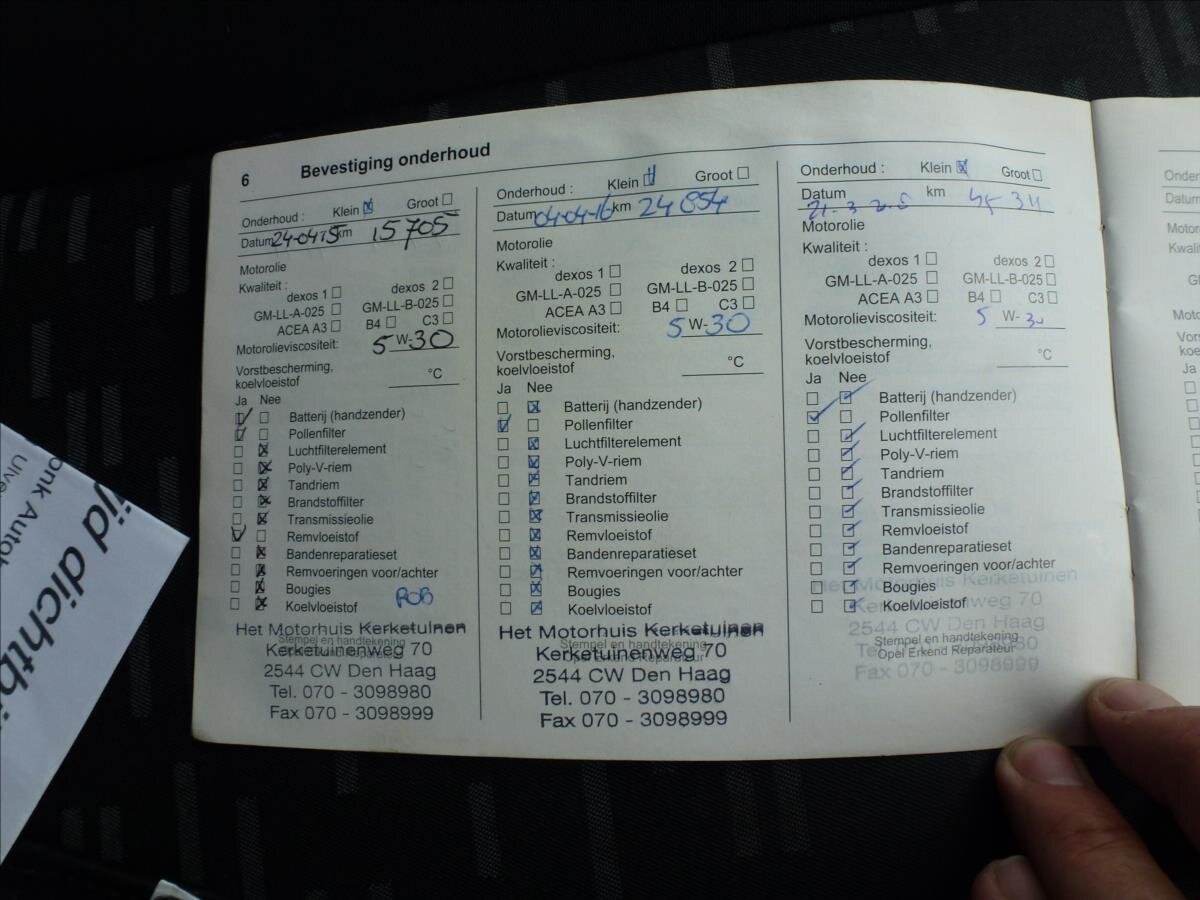 6 Bevestiging onderhoud
Onderhoud : Klein Groot
Datum 24-04-15 km 15705
Motorolie
Kwaliteit :
dexos 1 dexos 2
GM-LL-A-025 GM-LL-B-025
ACEA A3 B4 C3
Motorolieviscositeit: 5 W-30
Vorstbescherming,
koelvloeistof °C
Ja Nee
Batterij (handzender)
Pollenfilter
Luchtfilterelement
Poly-V-riem
Tandriem
Brandstoffilter
Transmissieolie
Remvloeistof
Bandenreparatieset
Remvoeringen voor/achter
Bougies
Koelvloeistof
ROB
Het Motorhuis Kerketuinen
Stempel en handtekening
Kerketuinenweg 70
2544 CW Den Haag
Tel. 070 - 3098980
Fax 070 - 3098999
Onderhoud : Klein Groot
Datum 04-04-16 km 24854
Motorolie
Kwaliteit :
dexos 1 dexos 2
GM-LL-A-025 GM-LL-B-025
ACEA A3 B4 C3
Motorolieviscositeit: 5 W-30
Vorstbescherming,
koelvloeistof °C
Ja Nee
Batterij (handzender)
Pollenfilter
Luchtfilterelement
Poly-V-riem
Tandriem
Brandstoffilter
Transmissieolie
Remvloeistof
Bandenreparatieset
Remvoeringen voor/achter
Bougies
Koelvloeistof
Het Motorhuis Kerketuinen
Stempel en handtekening
Kerketuinenweg 70
Opel Erkend Reparateur
2544 CW Den Haag
Tel. 070 - 3098980
Fax 070 - 3098999
Onderhoud : Klein Groot
Datum km
Motorolie
Kwaliteit :
dexos 1 dexos 2
GM-LL-A-025 GM-LL-B-025
ACEA A3 B4 C3
Motorolieviscositeit: 5 W-30
Vorstbescherming,
koelvloeistof °C
Ja Nee
Batterij (handzender)
Pollenfilter
Luchtfilterelement
Poly-V-riem
Tandriem
Brandstoffilter
Transmissieolie
Remvloeistof
Bandenreparatieset
Remvoeringen voor/achter
Bougies
Koelvloeistof
Het Motorhuis Kerketuinen
Kerketuinenweg 70
2544 CW Den Haag
Stempel en handtekening
Opel Erkend Reparateur
Fax 070 - 3098999